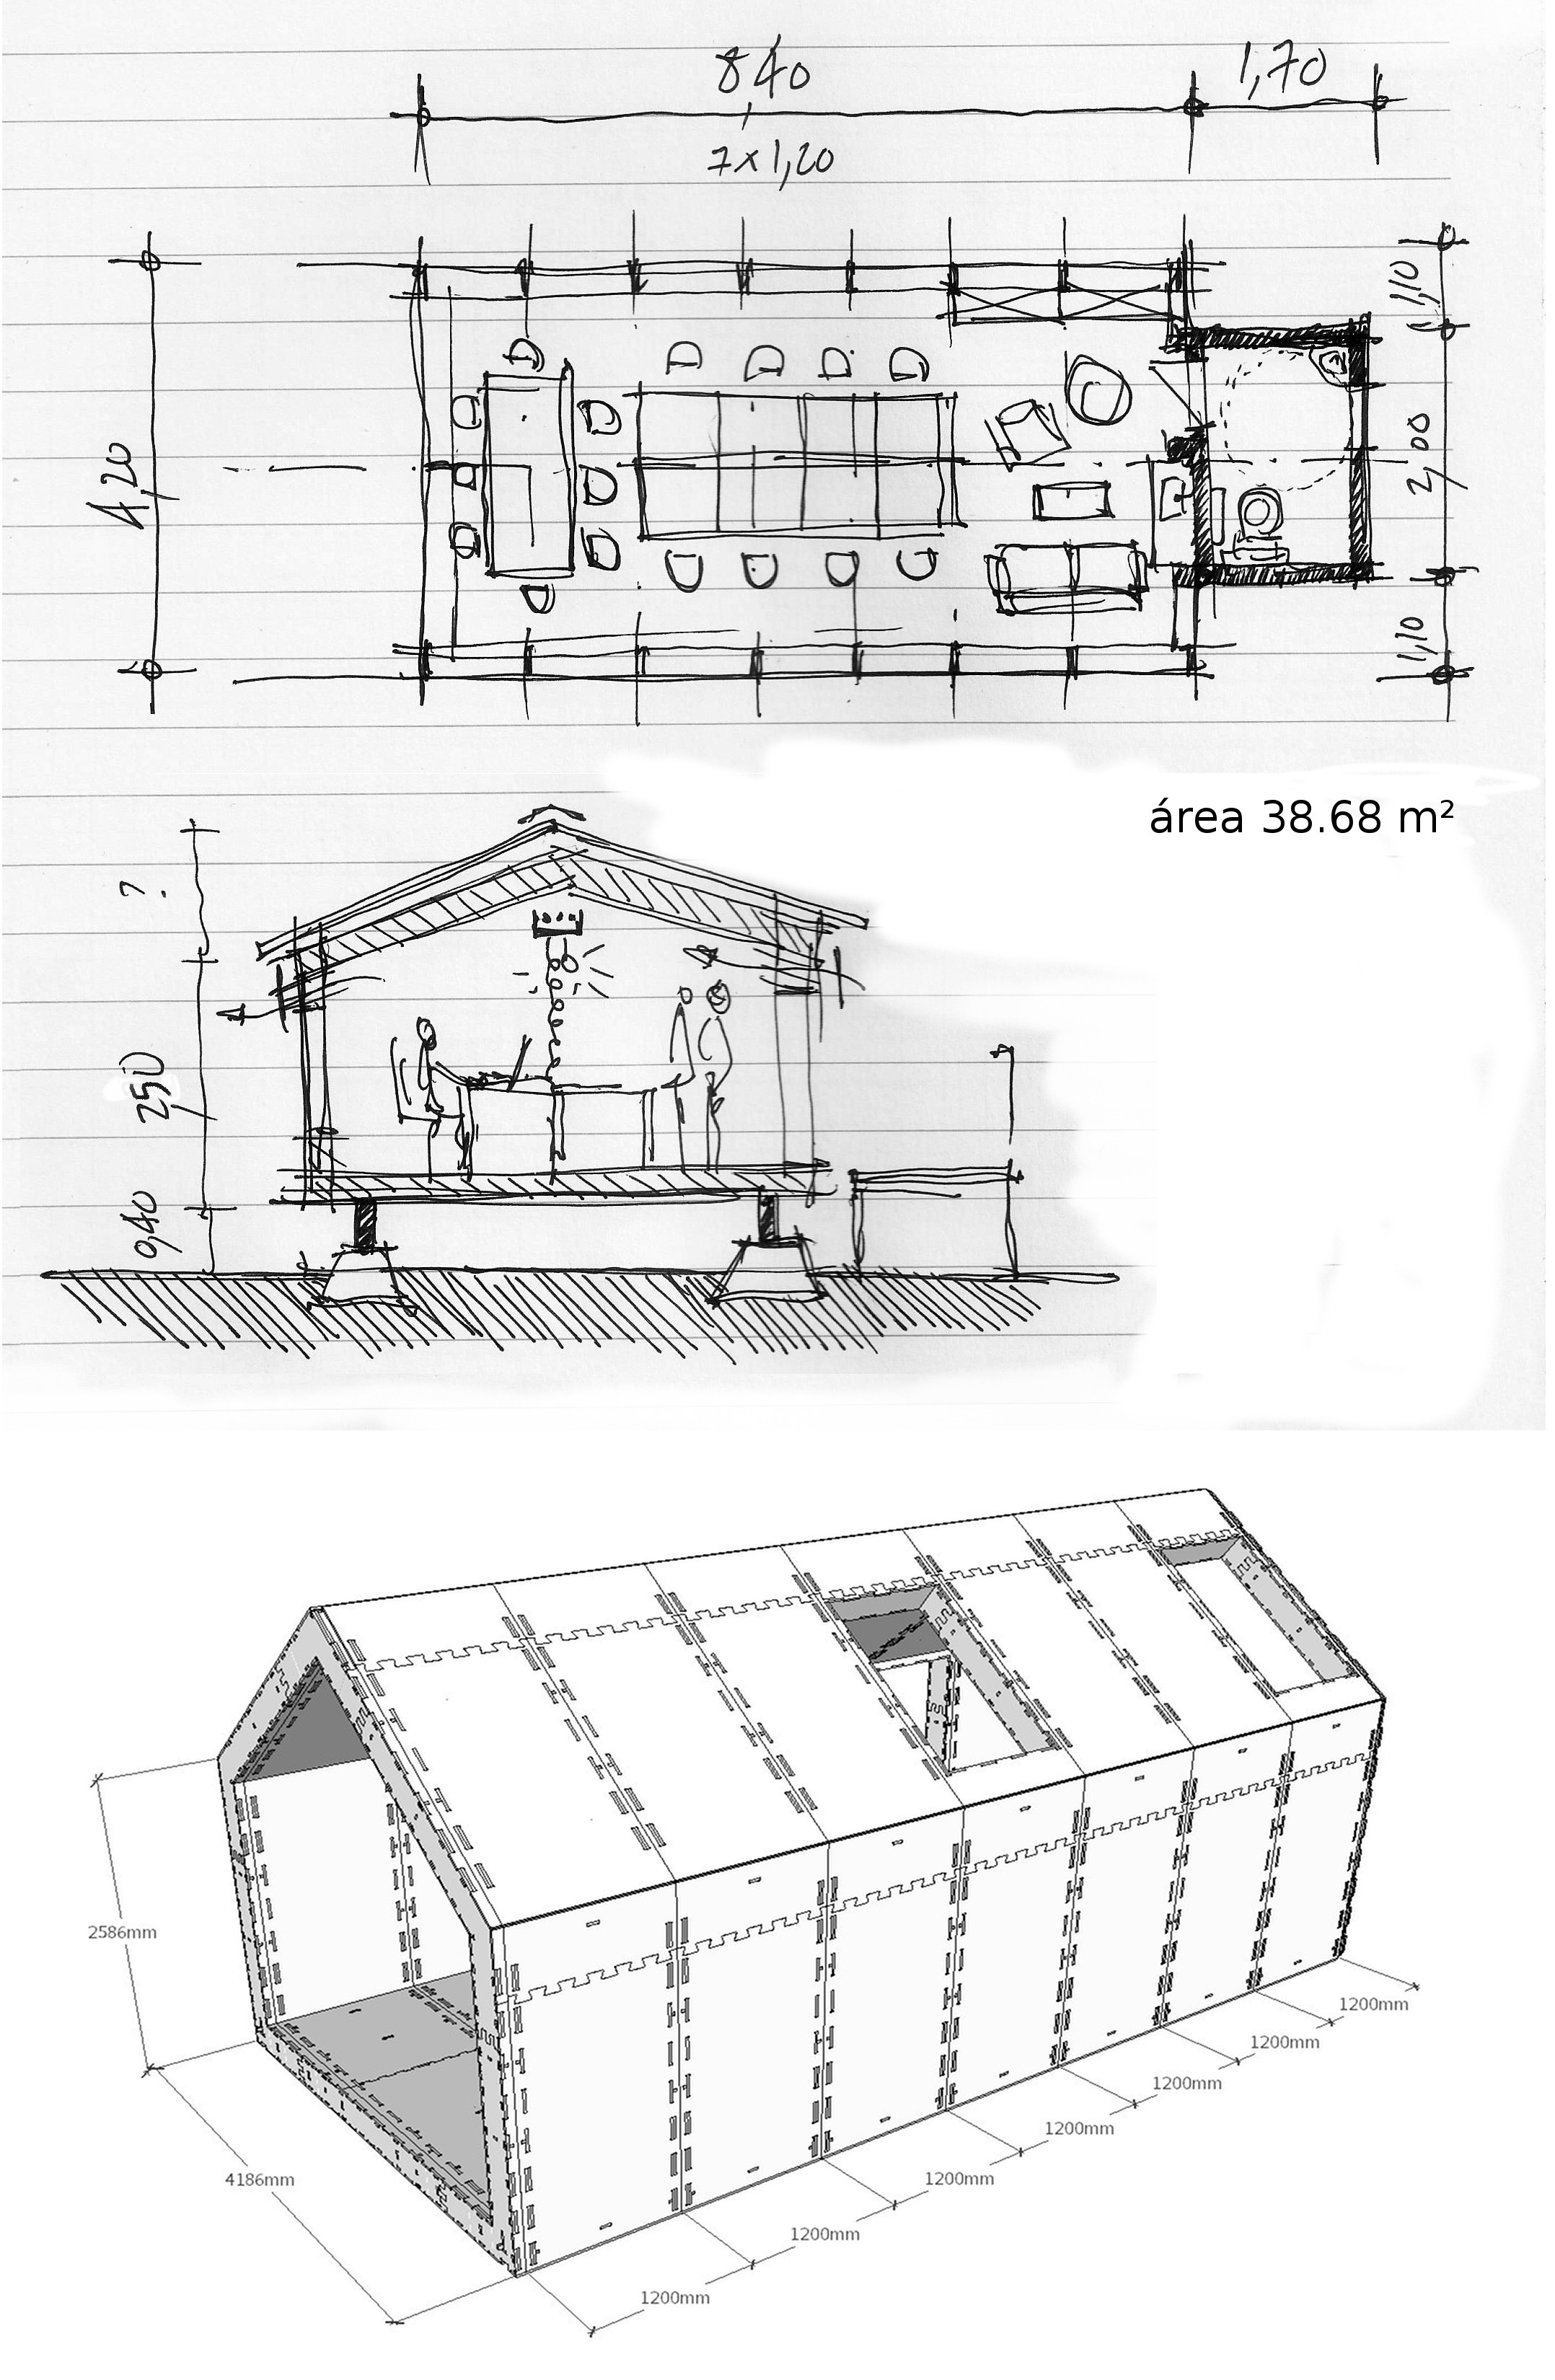 840
1,70
7x1,20
4,20
1,10
2,00
1,10
área 38.68 m²
?
250
0,40
2586mm
4186mm
1200mm
1200mm
1200mm
1200mm
1200mm
1200mm
1200mm